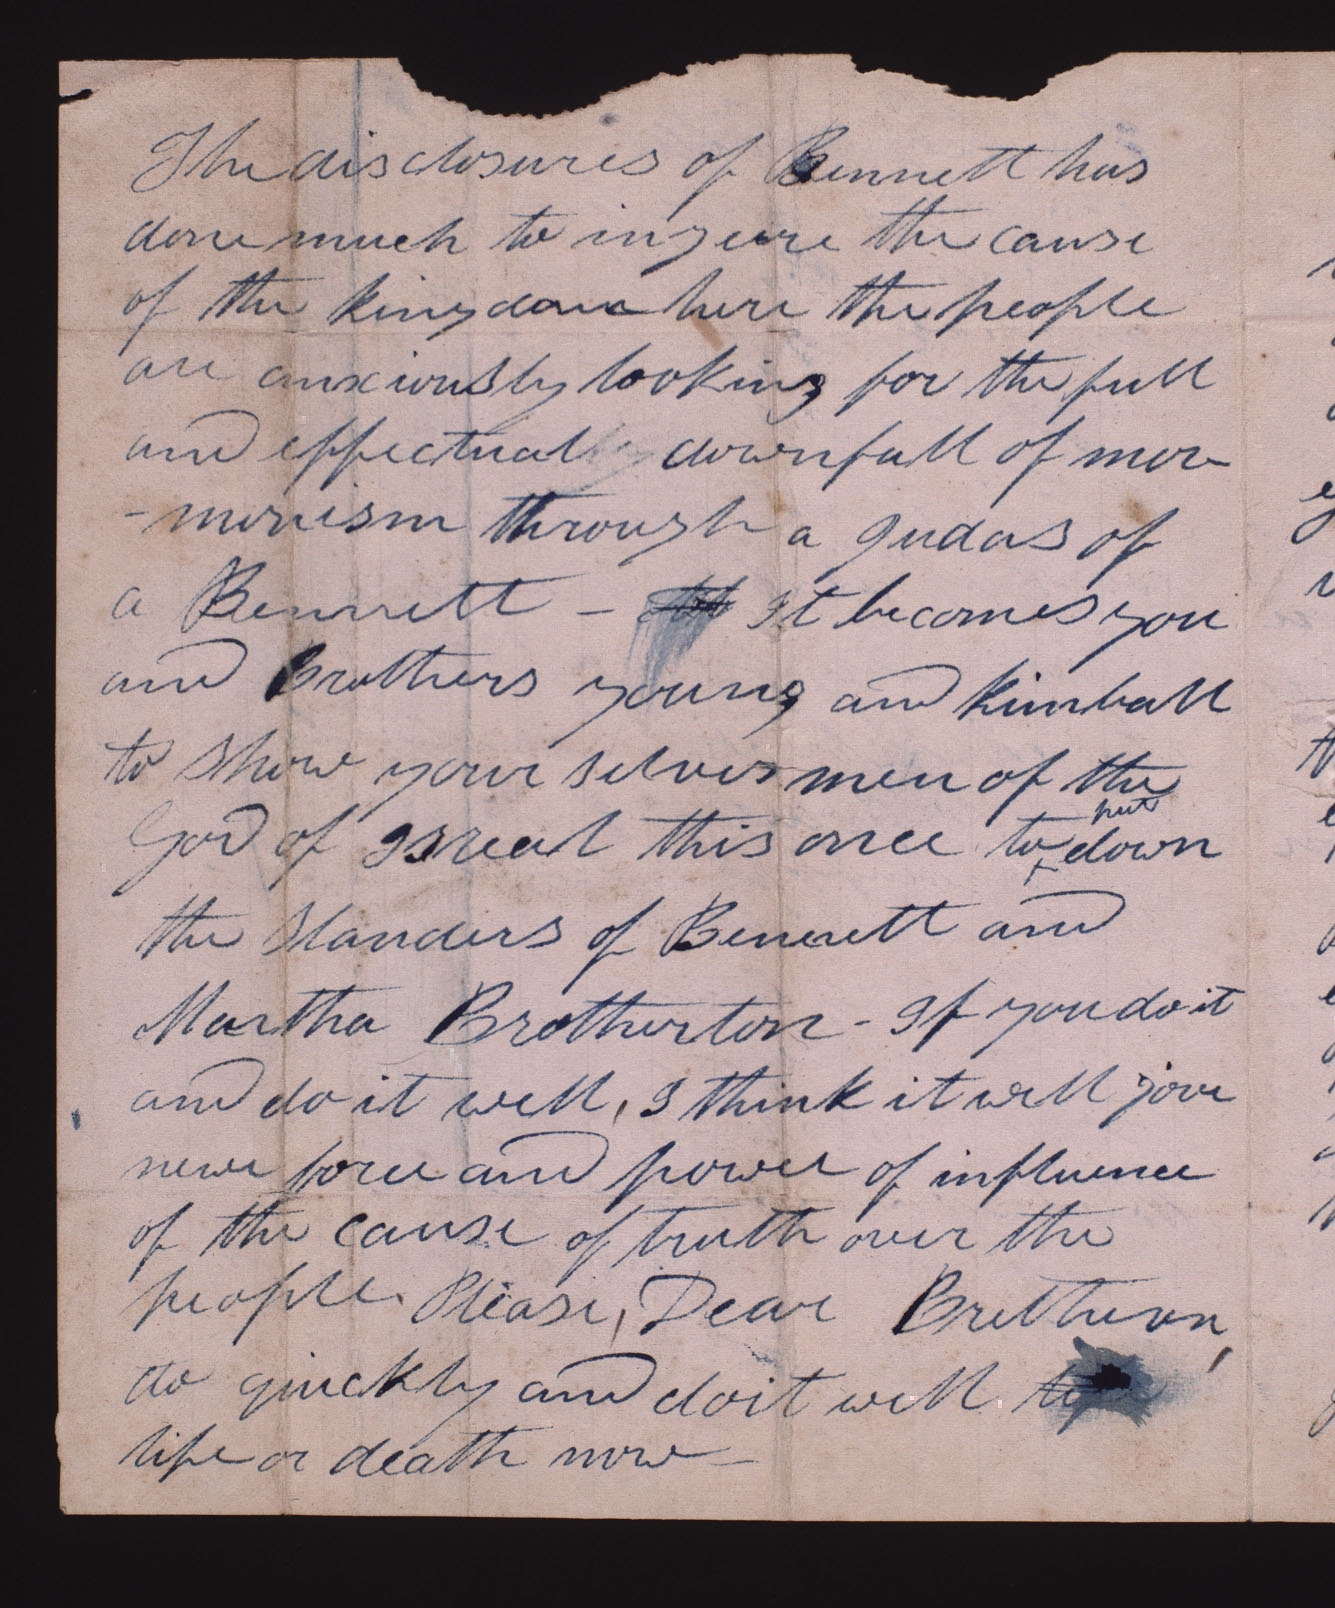 The disclosures of Bennett has
done much to injure the cause
of the kingdom here the people
are anxiously looking for the full
and effectual downfall of mor
-monism through a Judas of
a Bennett – It becomes you
and Brothers young and Kimball
to show your selves men of the
put
God of Isreal this once to down
the slanders of Bennett and
Martha Brotherton - If you do it
and do it well, I think it will give
new force and power of influence
of the cause of truth over the
people. Please, Dear Bretheren,
do quickly and do it well
life or death now –